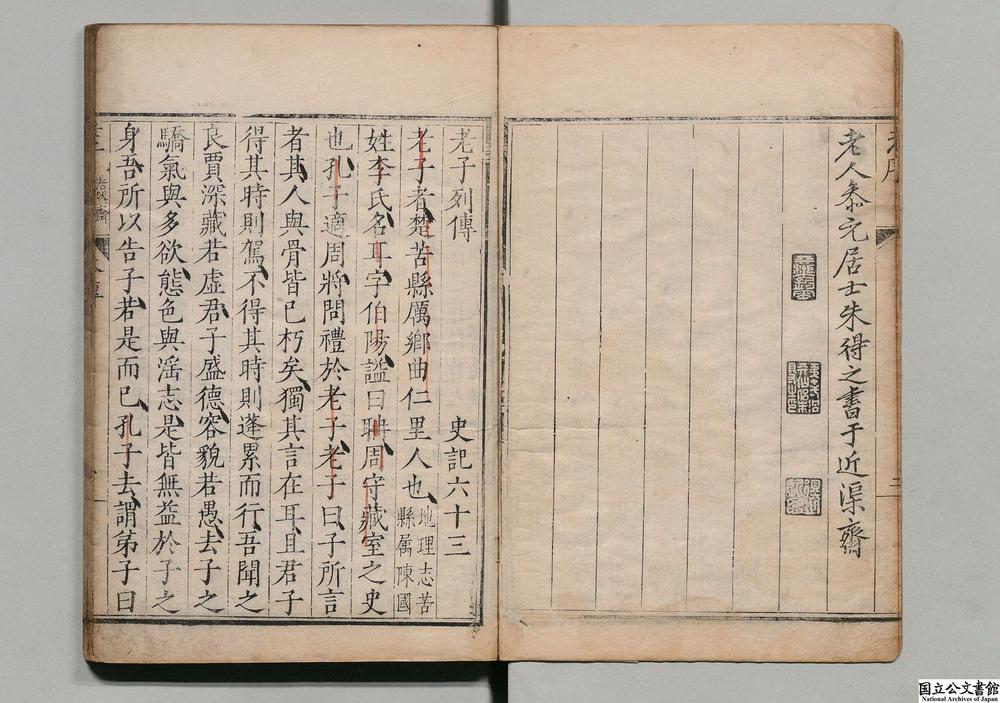 老人叅元居士朱得之書于近渠齋
老子列傳
史記六十三
老子者楚苦縣厲鄉曲仁里人也地理志苦縣屬陳國
姓李氏名耳字伯陽謚曰聃周守藏室之史
也孔子適周將問禮於老子老子曰子所言
者其人與骨皆已朽矣獨其言在耳且君子
得其時則駕不得其時則蓬累而行吾聞之
良賈深藏若虛君子盛德容貌若愚去子之
驕氣與多欲態色與淫志是皆無益於子之
身吾所以告子若是而已孔子去謂弟子曰
国立公文書館
National Archives of Japan